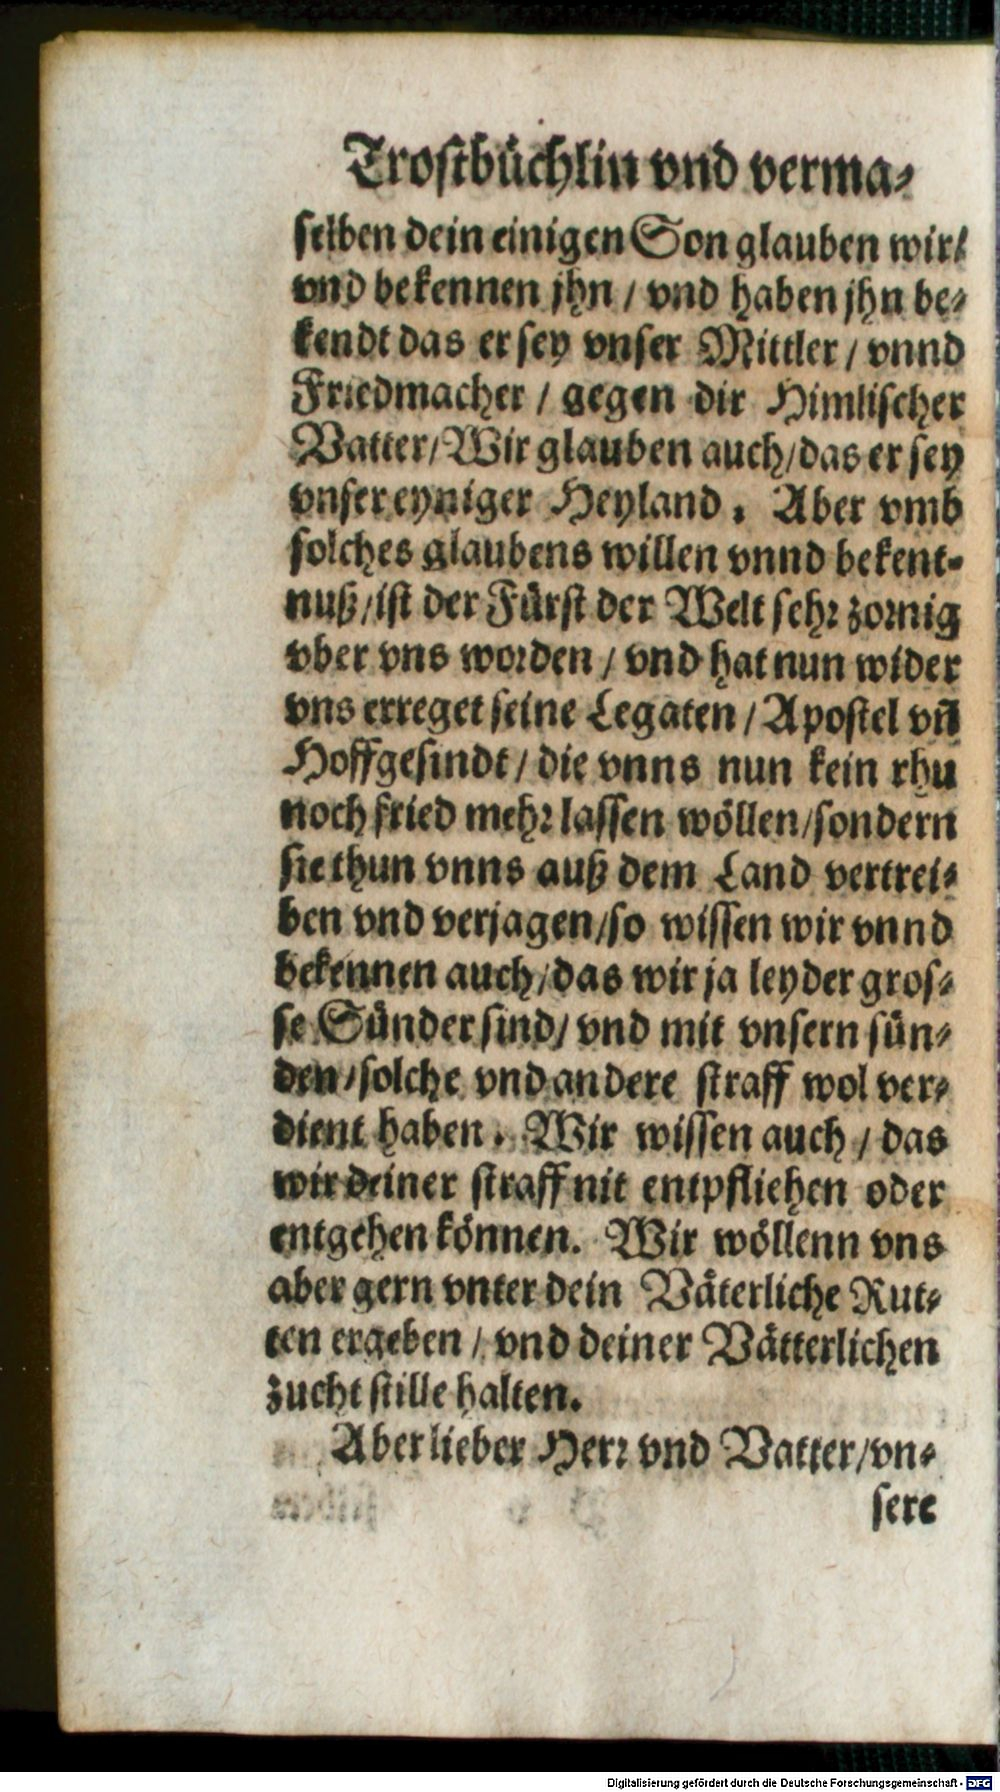 Trostbüchlin vnd verma-
selben dein einigen Son glauben wir/
vnd bekennen jhn / vnd haben jhn be-
kendt das er sey vnser Mittler / vnnd
Friedmacher / gegen dir Himlischer
Vatter/ Wir glauben auch/ das er sey
vnser eyniger Heyland. Aber vmb
solches glaubens willen vnnd bekent-
nuß/ ist der Fürst der Welt sehr zornig
vber vns worden / vnd hat nun wider
vns erreget seine Legaten / Apostel vn̄
Hoffgesindt / die vnns nun kein rhu
noch fried mehr lassen wöllen/ sondern
sie thun vnns auß dem Land vertrei-
ben vnd verjagen/ so wissen wir vnnd
bekennen auch/ das wir ja leyder gros-
se Sünder sind/ vnd mit vnsern sün-
den/ solche vnd andere straff wol ver-
dient haben. Wir wissen auch / das
wir deiner straff nit entpfliehen oder
entgehen können. Wir wöllenn vns
aber gern vnter dein Väterliche Rut-
ten ergeben / vnd deiner Vätterlichen
zucht stille halten.
Aber lieber Herr vnd Vatter/ vn-
sere
Digitalisierung gefördert durch die Deutsche Forschungsgemeinschaft - DFG